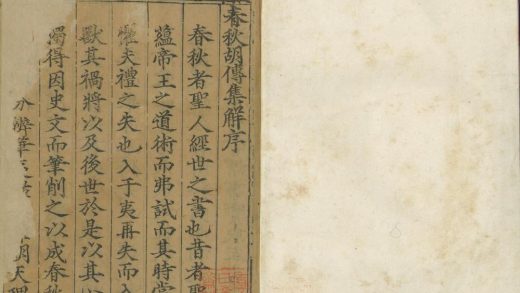 春秋胡傳集解序
春秋者聖人經世之書也昔者聖
蘊帝王之道術而弗試而其時當
夫禮之失也入于夷再失而入
獸其禍將以及後世於是以其
得因史文而筆削之以成春秋